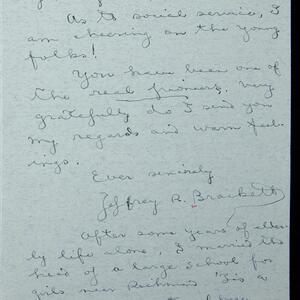 As to social service, I
am cheering on the young
folks!
You have been one of
the real pioneers. Very
gratefully do I send you
my regards and warm feel-
ings.
Ever sincerely
Jeffrey R. Brackett
After some years of elder-
ly life alone, I married the
head of a large school for
girls near Richmond. 'Tis a